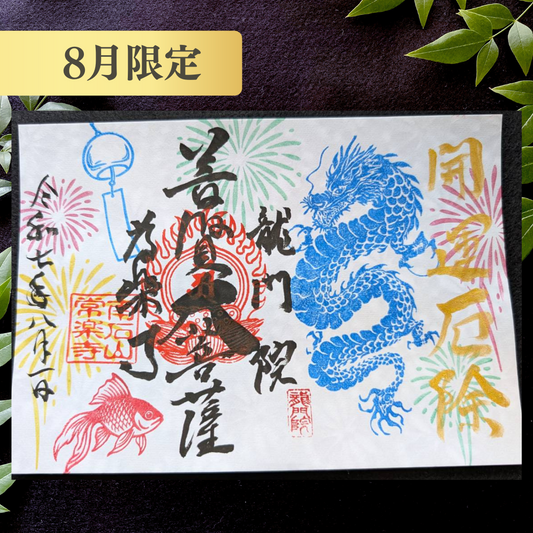 8月限定
開運厄除
龍門院
龍門院
普賢
菩薩
常楽寺
常楽寺
令和七年八月一日